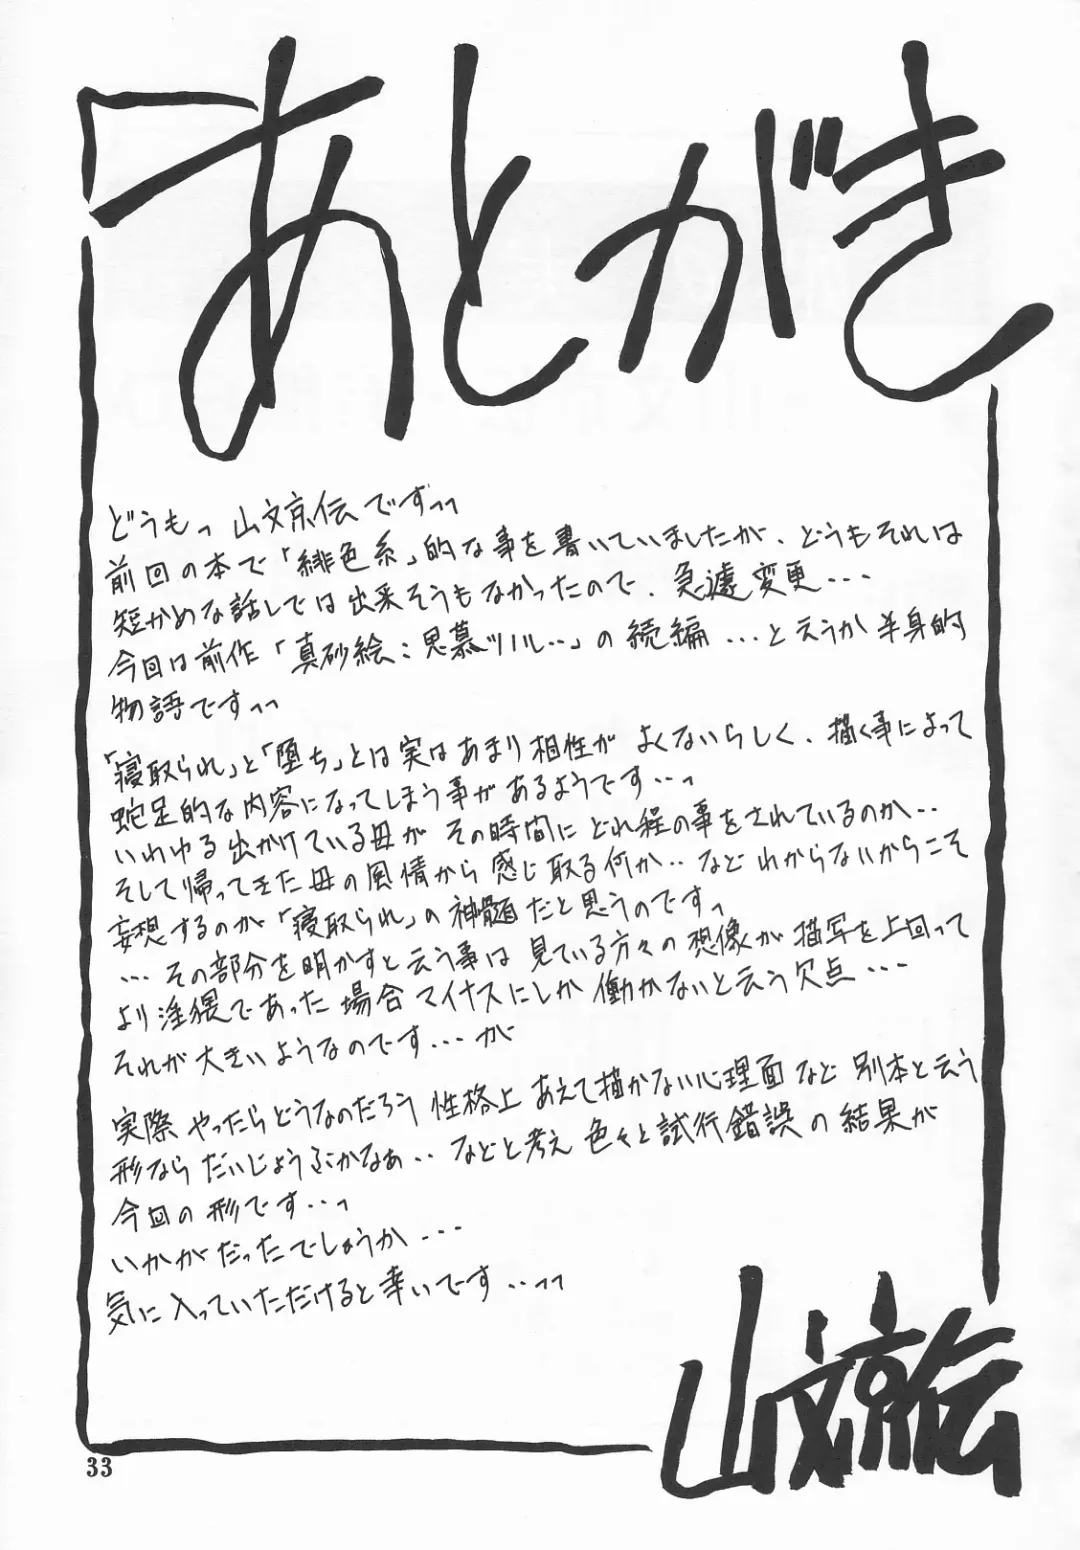 あとがき
どうもっ 山文京伝ですっっ
前回の本で「緋色系」的な事を書いていましたが、どうもそれは
短かめな話しでは出来そうもなかったので、急遽変更・・・
今回は前作「真砂絵:思慕ツノル・・」の続編・・・と云うか半身的
物語ですっっ
「寝取られ」と「堕ち」とは実はあまり相性がよくないらしく、描く事によって
蛇足的な内容になってしまう事があるようです・・っ
いわゆる出かけている母がその時間にどれ程の事をされているのか・・
そして帰ってきた母の風情から感じ取る何か・・などわからないからこそ
妄想するのが「寝取られ」の神髄だと思うのですっ
・・・その部分を明かすと云う事は見ている方々の想像が描写を上回って
より淫猥であった場合マイナスにしか働かないと云う欠点・・・
それが大きいようなのです・・・が
実際やったらどうなのだろう性格上あえて描かない心理面など別本と云う
形ならだいじょうぶかなぁ・・などと考え色々と試行錯誤の結果が
今回の形です・・っ
いかがだったでしょうか・・・
気に入っていただけると幸いです・・っっ
山文京伝
33